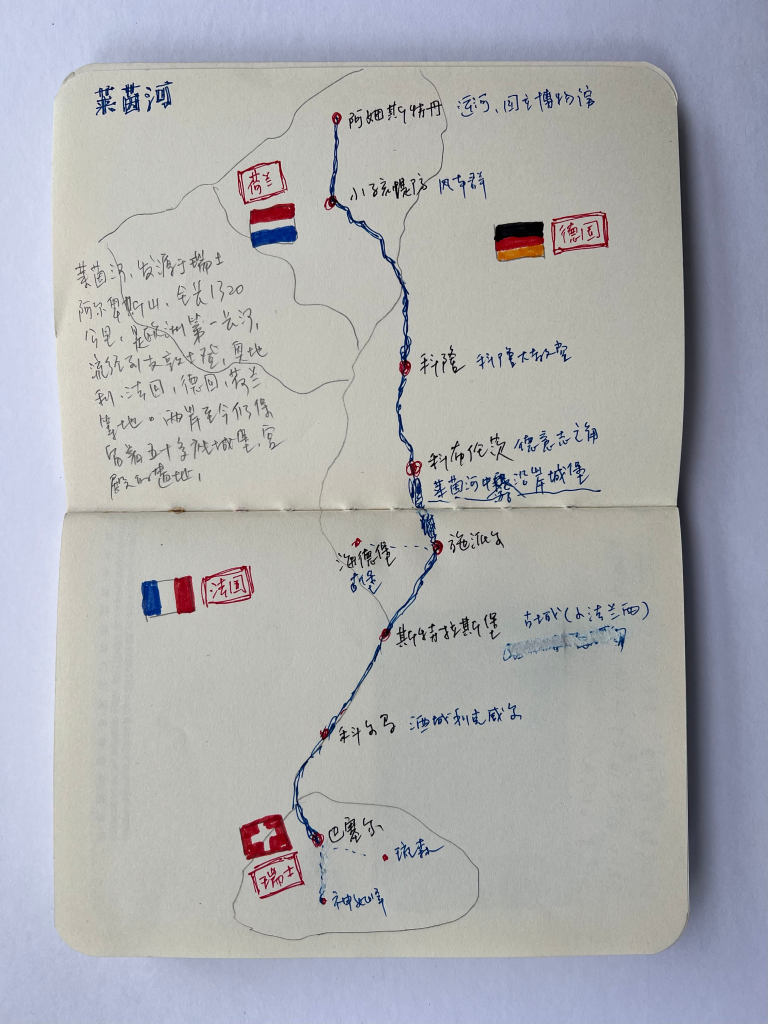 莱茵河
阿姆斯特丹 运河、国立博物馆
荷兰
小孩堤防 风车群
德国
莱茵河，发源于瑞士
阿尔卑斯山，全长1320
公里，是欧洲第一长河，
流经列支敦士登，奥地
利，法国，德国，荷兰
等地。两岸至今仍保
留着五十多座城堡、宫
殿的遗址，
科隆 科隆大教堂
科布伦茨 德意志之角
莱茵河中 沿岸城堡
施派尔
海德堡
古堡
法国
斯特拉斯堡 古城(小法兰西)
科尔马 酒城利克威尔
巴塞尔
琉森
瑞士
神女峰